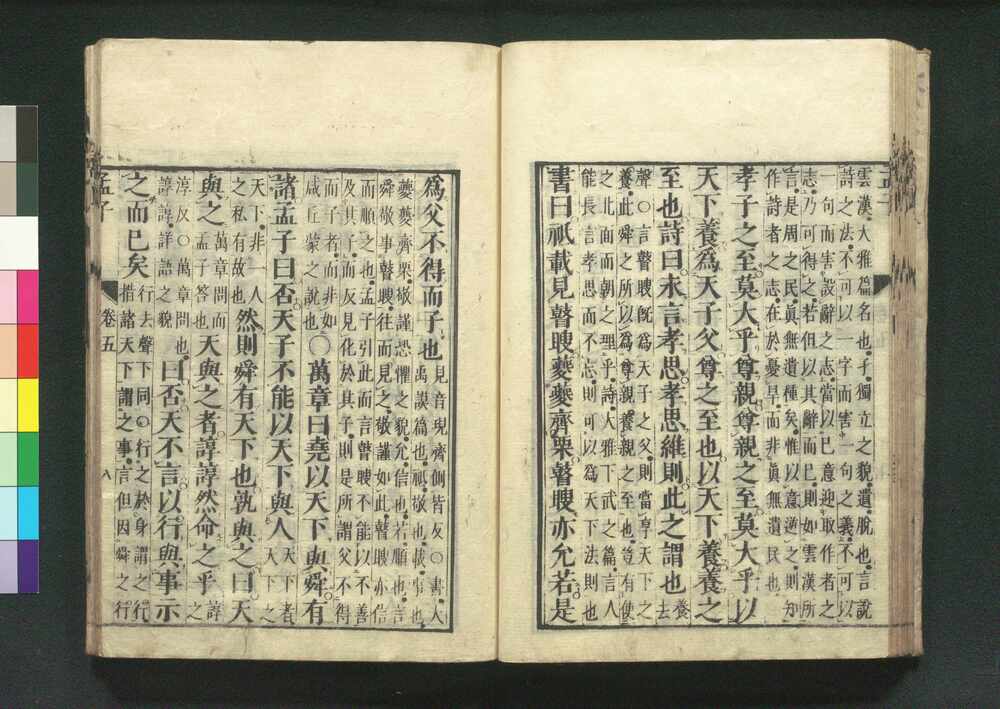 雲漢大雅篇名也孑獨立之貌遺脫也言說
詩之法不可以一字而害一句之義不可以
一句而害設辭之志當以己意迎取作者之
志乃可得之若但以其辭而已則如雲漢所
言是周之民眞無遺種矣惟以意逆之則知
作詩者之志在於憂旱而非眞無遺民也
孝子之至莫大乎尊親尊親之至莫大乎以
天下養爲天子父尊之至也以天下養養之
至也詩曰永言孝思孝思維則此之謂也養去
聲○言瞽瞍旣爲天子之父則當享天下之
養此舜之所以爲尊親養親之至也豈有使
之北面而朝之理乎詩大雅下武之篇言人
能長言孝思而不忘則可以爲天下法則也
書曰祇載見瞽瞍夔夔齊栗瞽瞍亦允若是
爲父不得而子也見音現齊側皆反○書大
禹謨篇也祇敬也載事也
夔夔齊栗敬謹恐懼之貌允信也若順也言
舜敬事瞽瞍往而見之敬謹如此瞽瞍亦信
而順之也孟子引此而言瞽瞍不能以不善
及其子而反見化於其子則是所謂父不得
而子者而非如
咸丘蒙之說也○萬章曰堯以天下與舜有
諸孟子曰否天子不能以天下與人天下者
天下之
天下非一人
之私有故也然則舜有天下也孰與之曰天
與之萬章問而
孟子答也天與之者諄諄然命之乎諄之
淳反○萬章問也
諄諄詳語之貌曰否天不言以行與事示
之而已矣行去聲下同○行之於身謂之行
措諸天下謂之事言但因舜之行
孟子
卷五
八
孟子